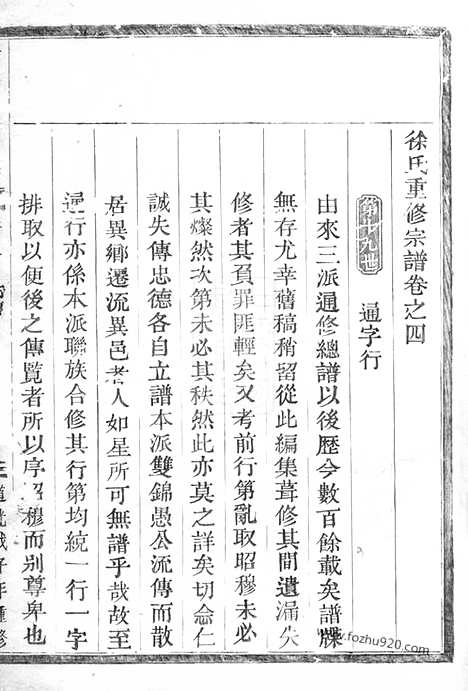 徐氏重修宗譜卷之四
第廿九世
通字行
由來三派通修總譜以後歷今數百餘載矣譜牒
無存尤幸舊稿稍留從此編集葺修其間遺漏失
修者其負罪匪輕矣又考前行第亂取昭穆未必
其燦然次第未必其秩然此亦莫之詳矣切念仁
誠失傳忠德各自立譜本派雙錦愚公流傳而散
居異鄉遷流異邑者人如星所可無譜乎哉故至
通行亦係本派聯族合修其行第均統一行一字
排取以便後之傳覽者所以序昭穆而别尊卑也
三 道光戊子年重修
www.fozhu920.com